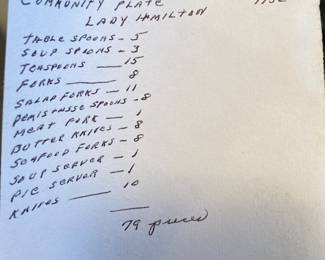 COMMUNITY PLATE 1932
LADY HAMILTON
TABLE SPOONS - 5
SOUP SPOONS - 3
TEASPOONS — 15
FORKS — 8
SALAD FORKS - 11
DEMISTASSE SPOONS - 8
MEAT FORK - 1
BUTTER KNIFES - 8
SEAFOOD FORKS - 8
SOUP SERVER - 1
PIE SERVER - 1
KNIFES — 10
79 pieces